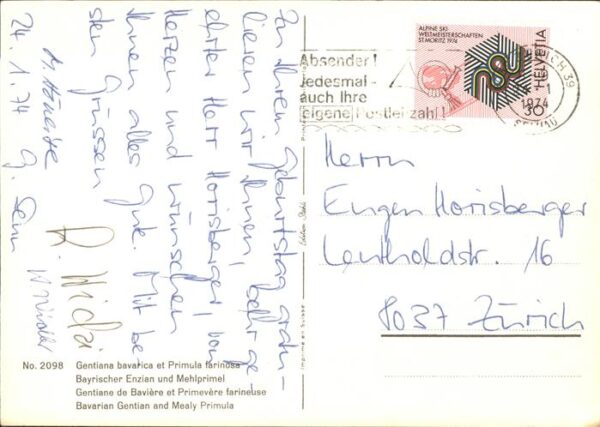 Zu Ihrem Geburtstag gratu-
lieren wir Ihnen, sehr ge-
ehrter Herr Horisberger, von
Herzen und wünschen
Ihnen alles Gute. Mit be-
sten Grüssen
24.1.74
No. 2098 Gentiana bavarica et Primula farinosa
Bayrischer Enzian und Mehlprimel
Gentiane de Bavière et Primevère farineuse
Bavarian Gentian and Mealy Primula
Imprimé en Suisse
Absender!
Jedesmal -
auch Ihre
eigene Postleitzahl!
ALPINE SKI
WELTMEISTERSCHAFTEN
ST. MORITZ 1974
HELVETIA
30
1974
Herrn
Eugen Horisberger
Leutholdstr. 16
8037 Zürich